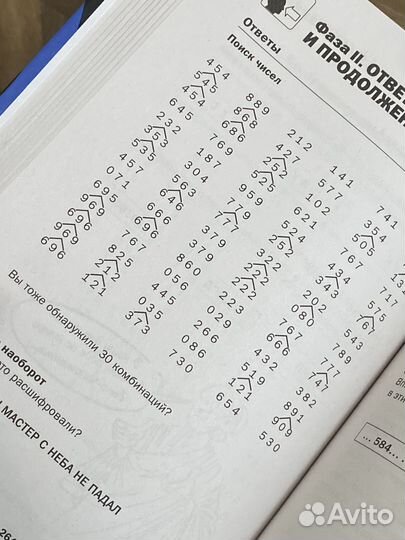 Фаза II. ОТВЕ
И ПРОДОЛЖЕН
Ответы
Поиск чисел
454
545
454
645
232
353
535
457
071
695
969
696
969
696
889
868
686
769
187
304
563
646
666
696
767
825
212
121
212
427
252
525
959
779
777
379
379
860
056
445
035
373
141
577
102
621
524
252
322
222
222
223
029
266
086
730
741
354
505
767
434
343
202
080
767
666
432
519
121
654
717
575
543
789
777
747
382
891
909
530
Вы тоже обнаружили 30 комбинаций?
наоборот
то расшифровали?
МАСТЕР С НЕБА НЕ ПАДАЛ
26
в эти
... 584...
Avito